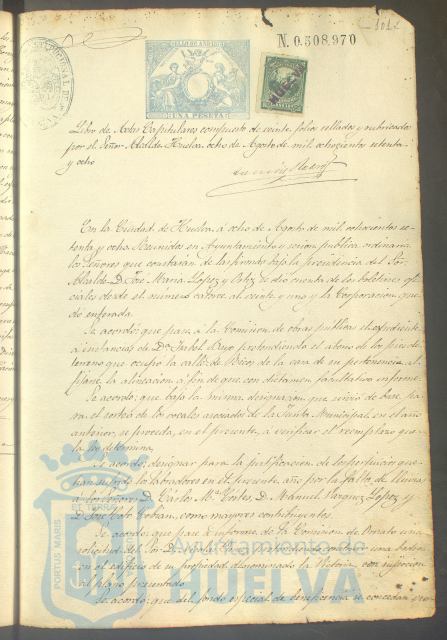 101
N. 0.508,970
SELLO DE AÑO 1878
UNA PESETA
HUELVA
Libro de Actas Capitulares compuesto de veinte folios sellados y rubricados
por el Señor Alcalde. Huelva ocho de Agosto de mil ochocientos setenta
y ocho
En la Ciudad de Huelva, á ocho de Agosto de mil ochocientos se-
tenta y ocho. Reunidos en Ayuntamiento y sesion publica ordinaria
los Señores que constarán de las firmas bajo la presidencia del Sor.
Alcalde D. José Maria Lopez y Ortiz se dió cuenta de los boletines ofi-
ciales desde el numero catorce al veinte y uno y la Corporacion que-
dó enterada.
Se acordó: que pase á la Comision de obras publicas el espediente
á instancias de Dª Isabel pretendiendo el abono de los pies de
terreno que ocupó la calle de Bicos de la casa de su pertenencia al
fijarse la alineacion á fin de que con dictamen facultativo informe
Se acordó: que bajo la misma designacion que sirvió de base pa-
ra el sorteo de los vocales asociados de la Junta Municipal en el año
anterior, se proceda, en el presente, á verificar el reemplazo que
la ley determina.
Se acordó: designar para la justificacion de los perjuicios que
han sufrido los labradores en el presente año por la falta de lluvias
á los Señores D. Carlos Mª Cortes, D. Manuel Vazquez Lopez y
D. José Coto Cobian, como mayores contribuyentes.
Se acordó: que pase á informe de la Comision de Ornato una
solicitud del Sor D.
en el edificio de su propiedad denominado la Victoria, con sujecion
al plano presentado
Se acordó: que del fondo especial de beneficencia se concedan
PORTUS MARIS
ET TERRAE
Ayuntamiento de
HUELVA